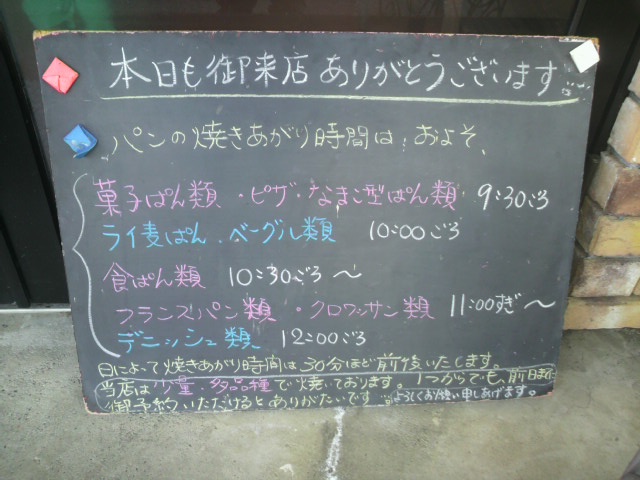 本日も御来店ありがとうございます
パンの焼きあがり時間は、およそ、
菓子ぱん類・ピザ・なまこ型ぱん類 9:30ごろ
ライ麦ぱん、ベーグル類 10:00ごろ
食ぱん類 10:30ごろ〜
フランスパン類・クロワッサン類 11:00すぎ〜
デニッシュ類 12:00ごろ
日によって焼きあがり時間は30分ほど前後いたします。
当店は少量・多品種で焼いております。1つからでも、前日迄に
御予約いただけるとありがたいです よろしくお願い申しあげます。